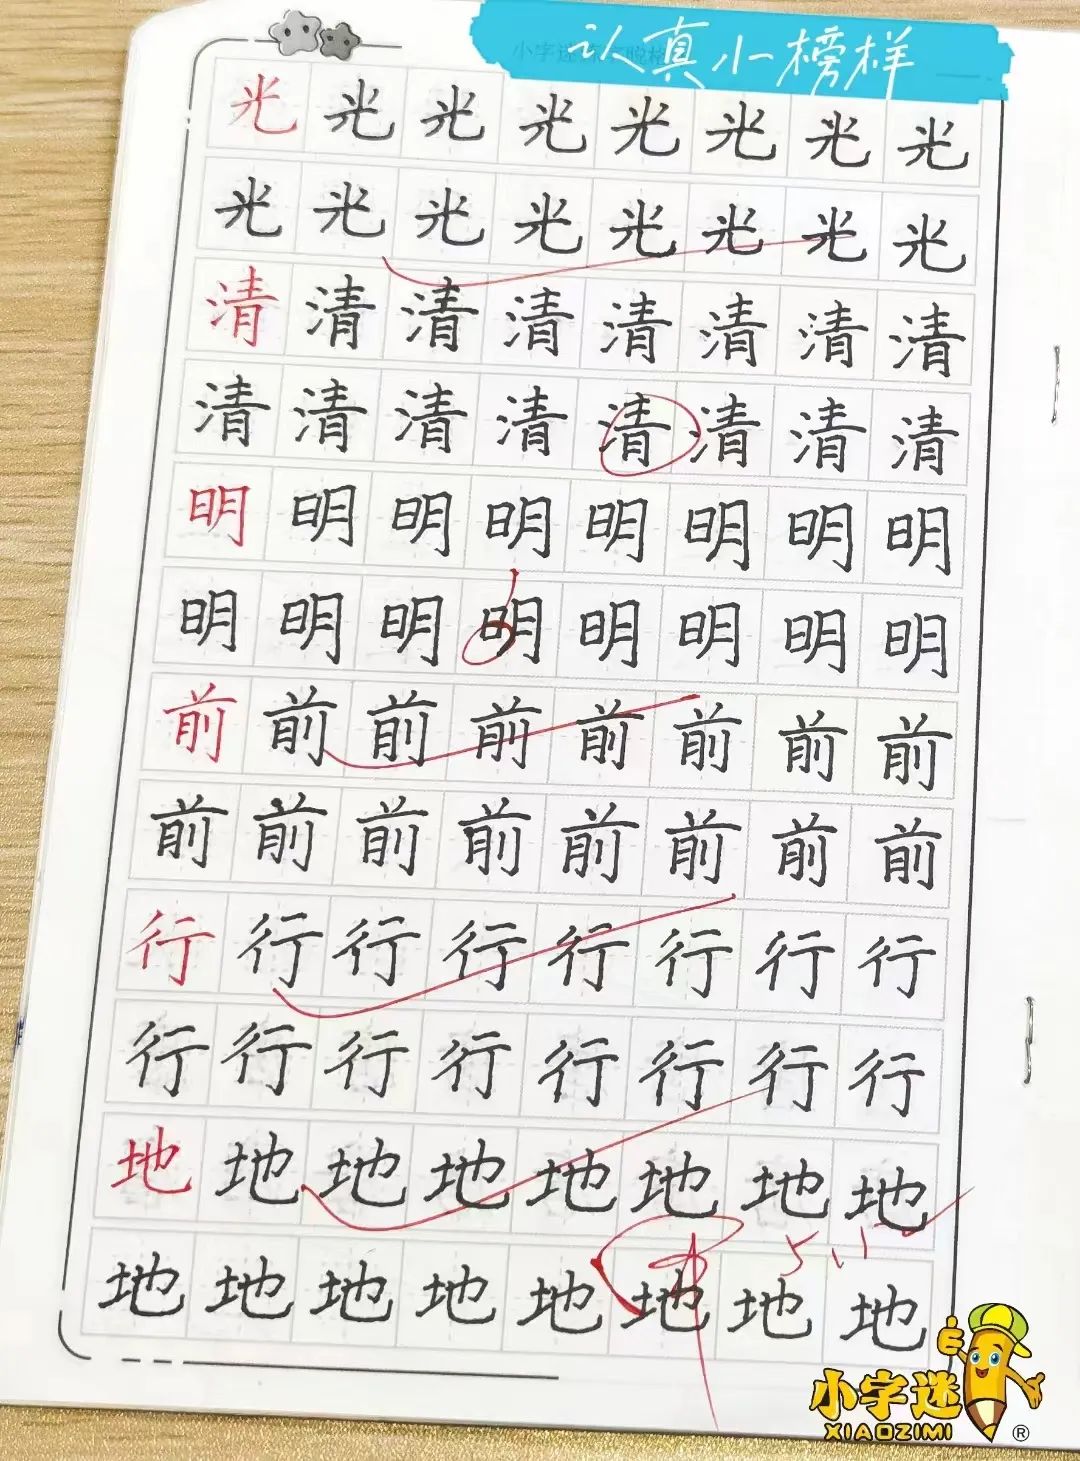 认真小榜样
光光光光光光光光
光光光光光光光光
清清清清清清清清
清清清清清清清清
明明明明明明明明
明明明明明明明明
前前前前前前前前
前前前前前前前前
行行行行行行行行
行行行行行行行行
地地地地地地地地
地地地地地地地地
小字迷
XIAOZIMI®